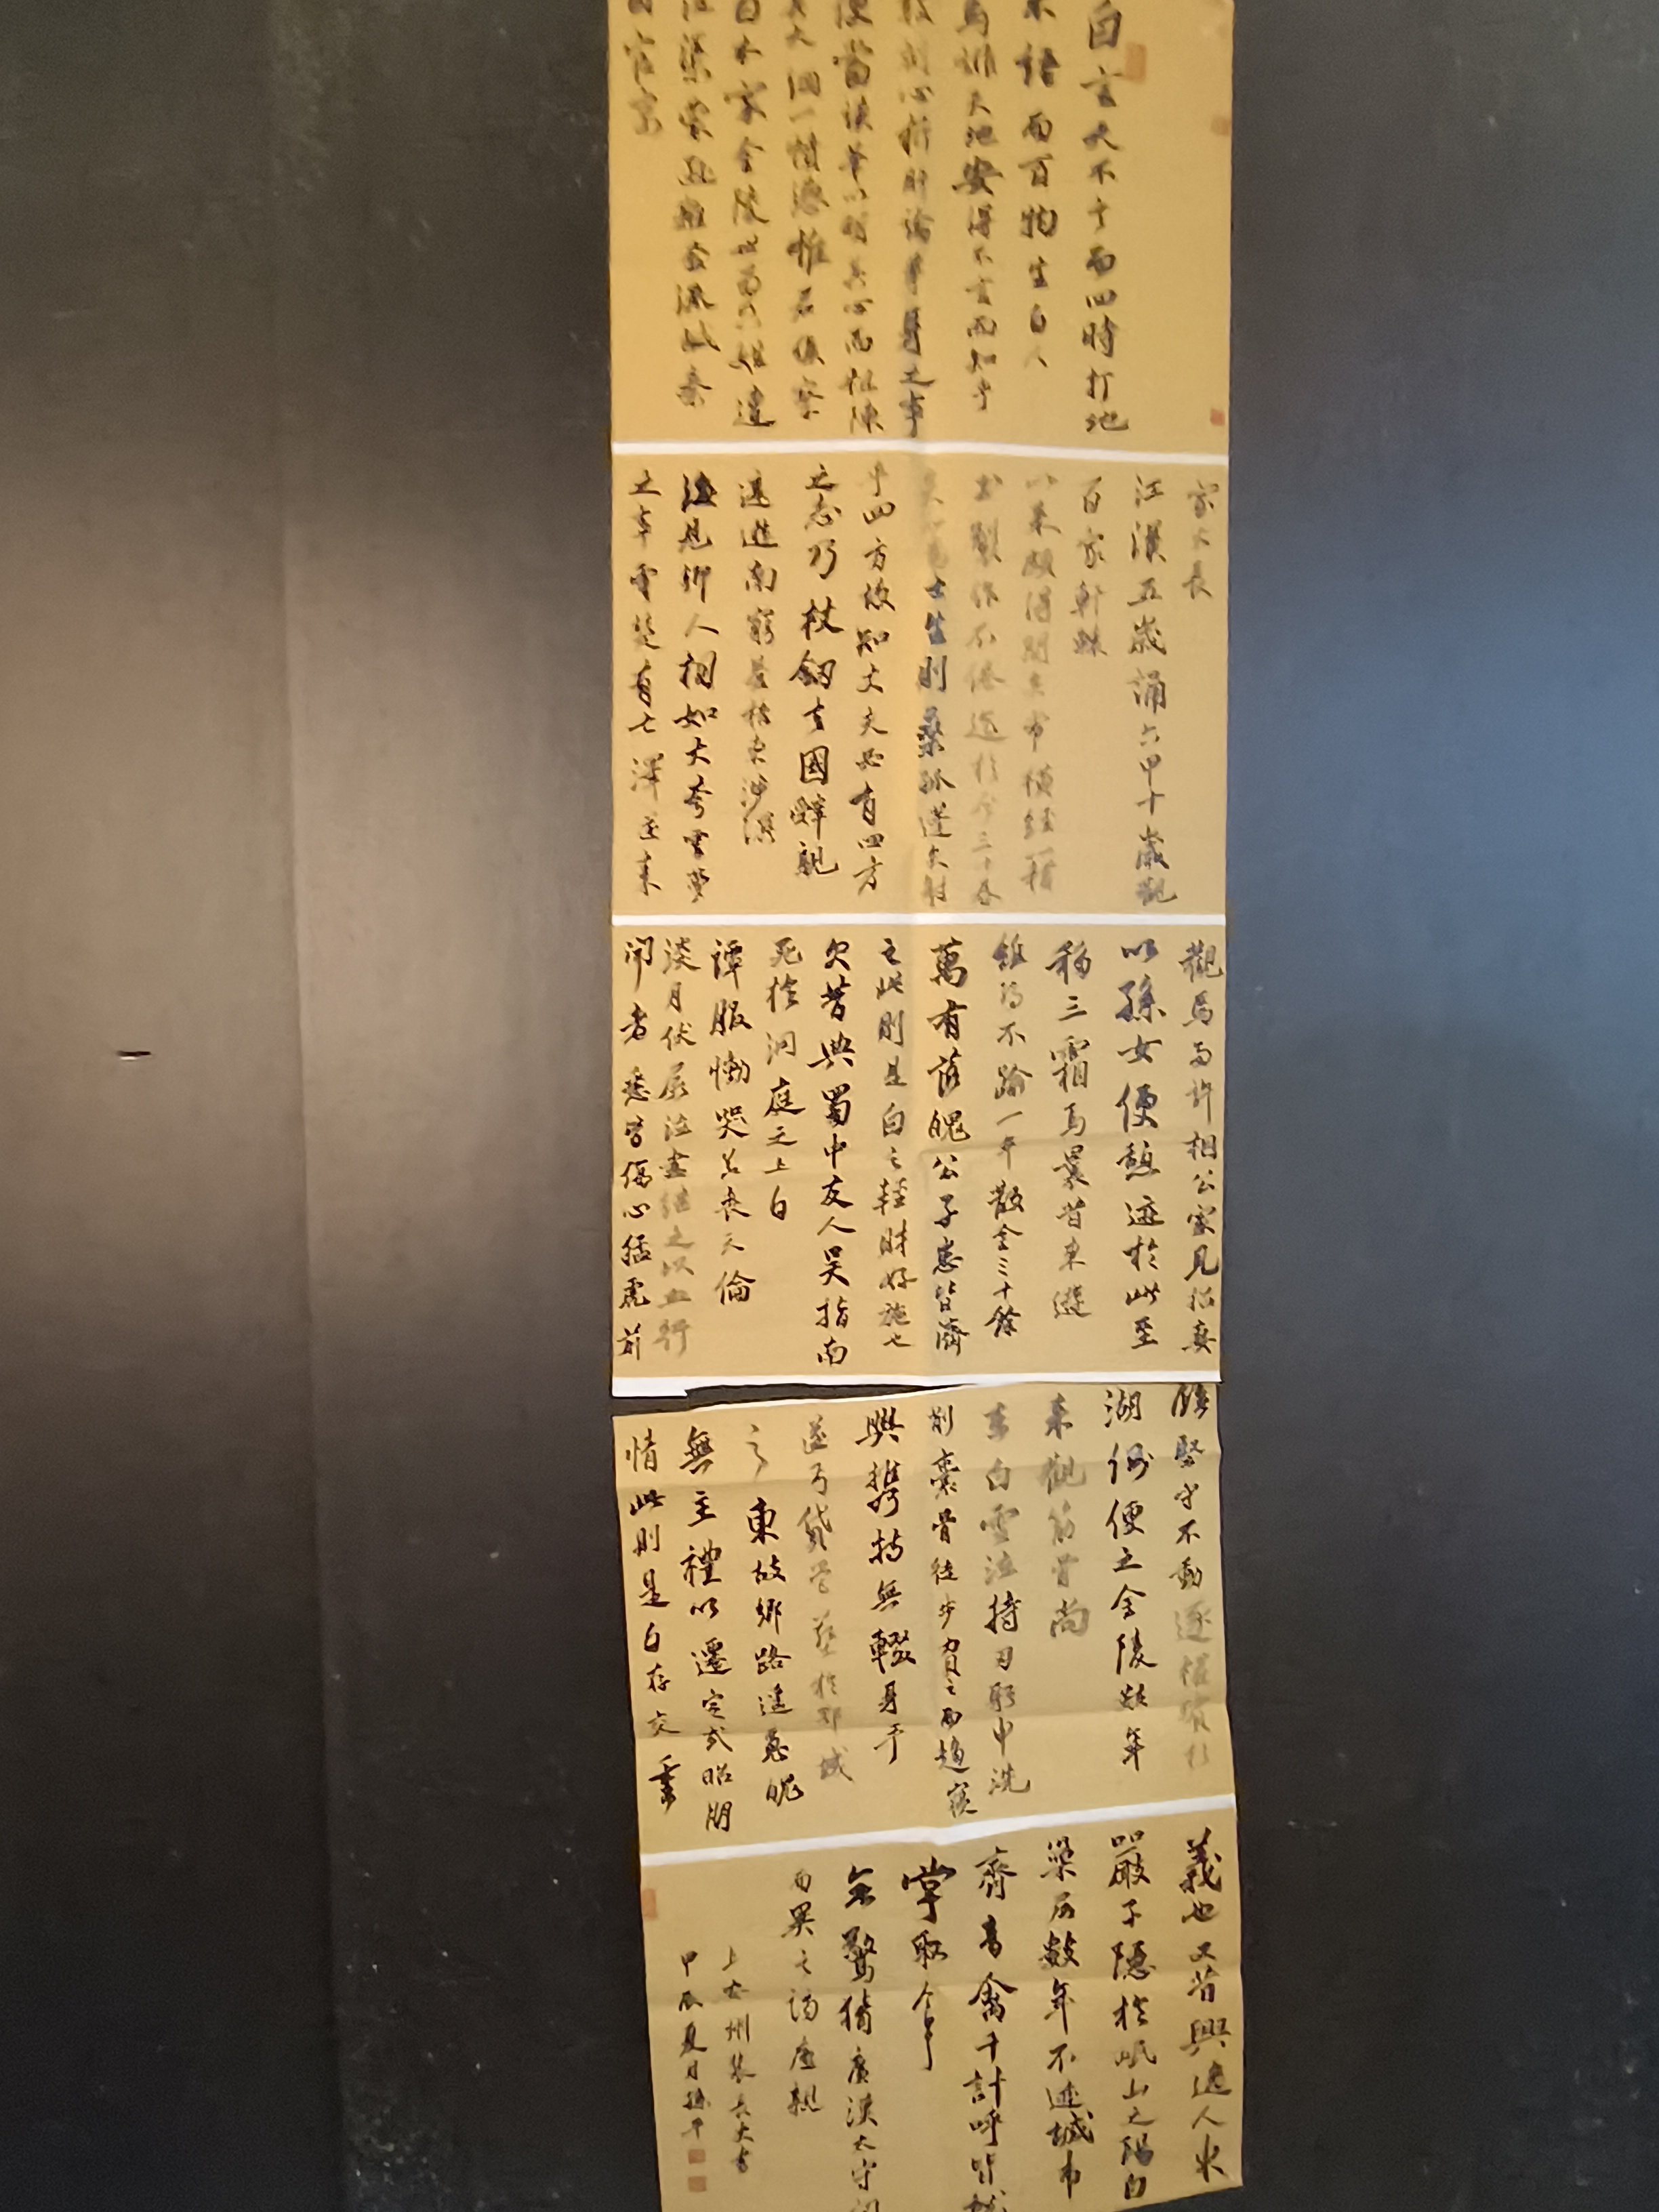 白言天不言而四時行地
不語而百物生白人
焉非天地安得不言而知乎
敢剖心析肝論舉身之事
便當談筆以明其心而粗陳
其大綱一快憤懣惟君侯察
白本家金陵世為右姓遭
沮渠蒙遜難奔流咸秦
因官寓
家少長
江漢五歲誦六甲十歲觀
百家軒轅
以來頗得聞矣常橫經籍
書製作不倦迄於今三十春
矣以為士生則桑弧蓬矢射
乎四方故知丈夫必有四方
之志乃杖劍去國辭親
遠遊南窮蒼梧東涉溟
海見鄉人相如大夸雲夢
之事雲楚有七澤遂來
觀焉而許相公家見招妻
以孫女便憩迹於此至
移三霜焉曩昔東遊
維揚不踰一年散金三十餘
萬有落魄公子悉皆濟
之此則是白之輕財好施也
又昔與蜀中友人吳指南
死於洞庭之上白
禫服慟哭若喪天倫
炎月伏屍泣盡繼之以血行
聞者悉皆傷心猛虎前
臨堅守不動遂權殯於
湖側便之金陵數年
來觀筋骨尚
在白雪泣持刃躬申洗
削裹骨徒步負之而趨寢
興攜持無輟身手
遂丐貸營葬於鄂城
之東故鄉路遙魂魄
無主禮以遷窆式昭朋
情此則是白存交重
義也又昔與逸人東
嚴子隱於岷山之陽白
巢居數年不迹城市
養奇禽千計呼皆就
掌取食
了無驚猜廣漢太守聞
而異之詣廬親
上安州裴長史書
甲辰夏月孫